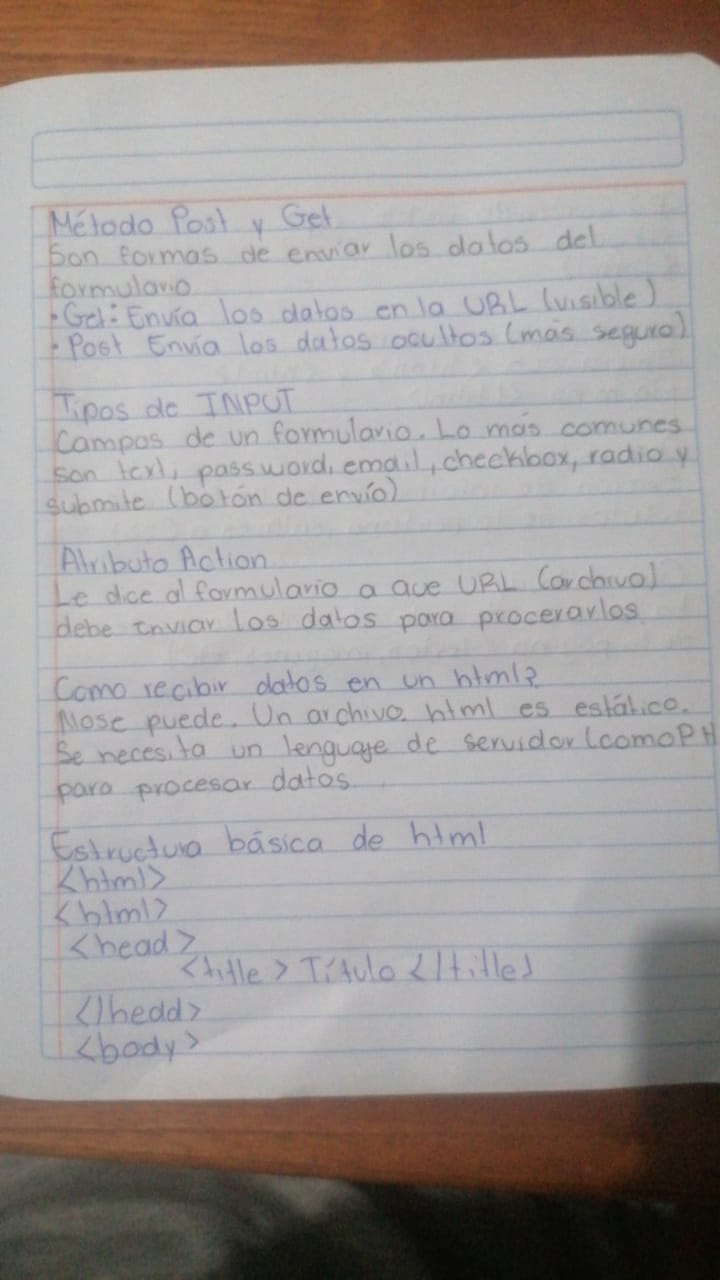 Método Post y Get
Son formas de enviar los datos del
formulario
• Get: Envía los datos en la URL (visible)
• Post Envía los datos ocultos (más seguro)
Tipos de INPUT
Campos de un formulario. Lo más comunes
son text, password, email, checkbox, radio y
submite (botón de envío)
Atributo Action
Le dice al formulario a que URL (archivo)
debe enviar los datos para procerarlos
Como recibir datos en un html?
Nose puede. Un archivo. html es estático.
Se necesita un lenguaje de servidor (como PH
para procesar datos.
Estructura básica de html
<html>
<html>
<head>
<title> Título </title>
</hedd>
<body>